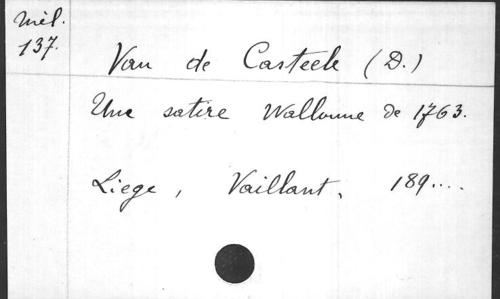 Mél.
137.
Van de Casteele (D.)
Une satire Wallonne de 1763.
Liege, Vaillant, 189....